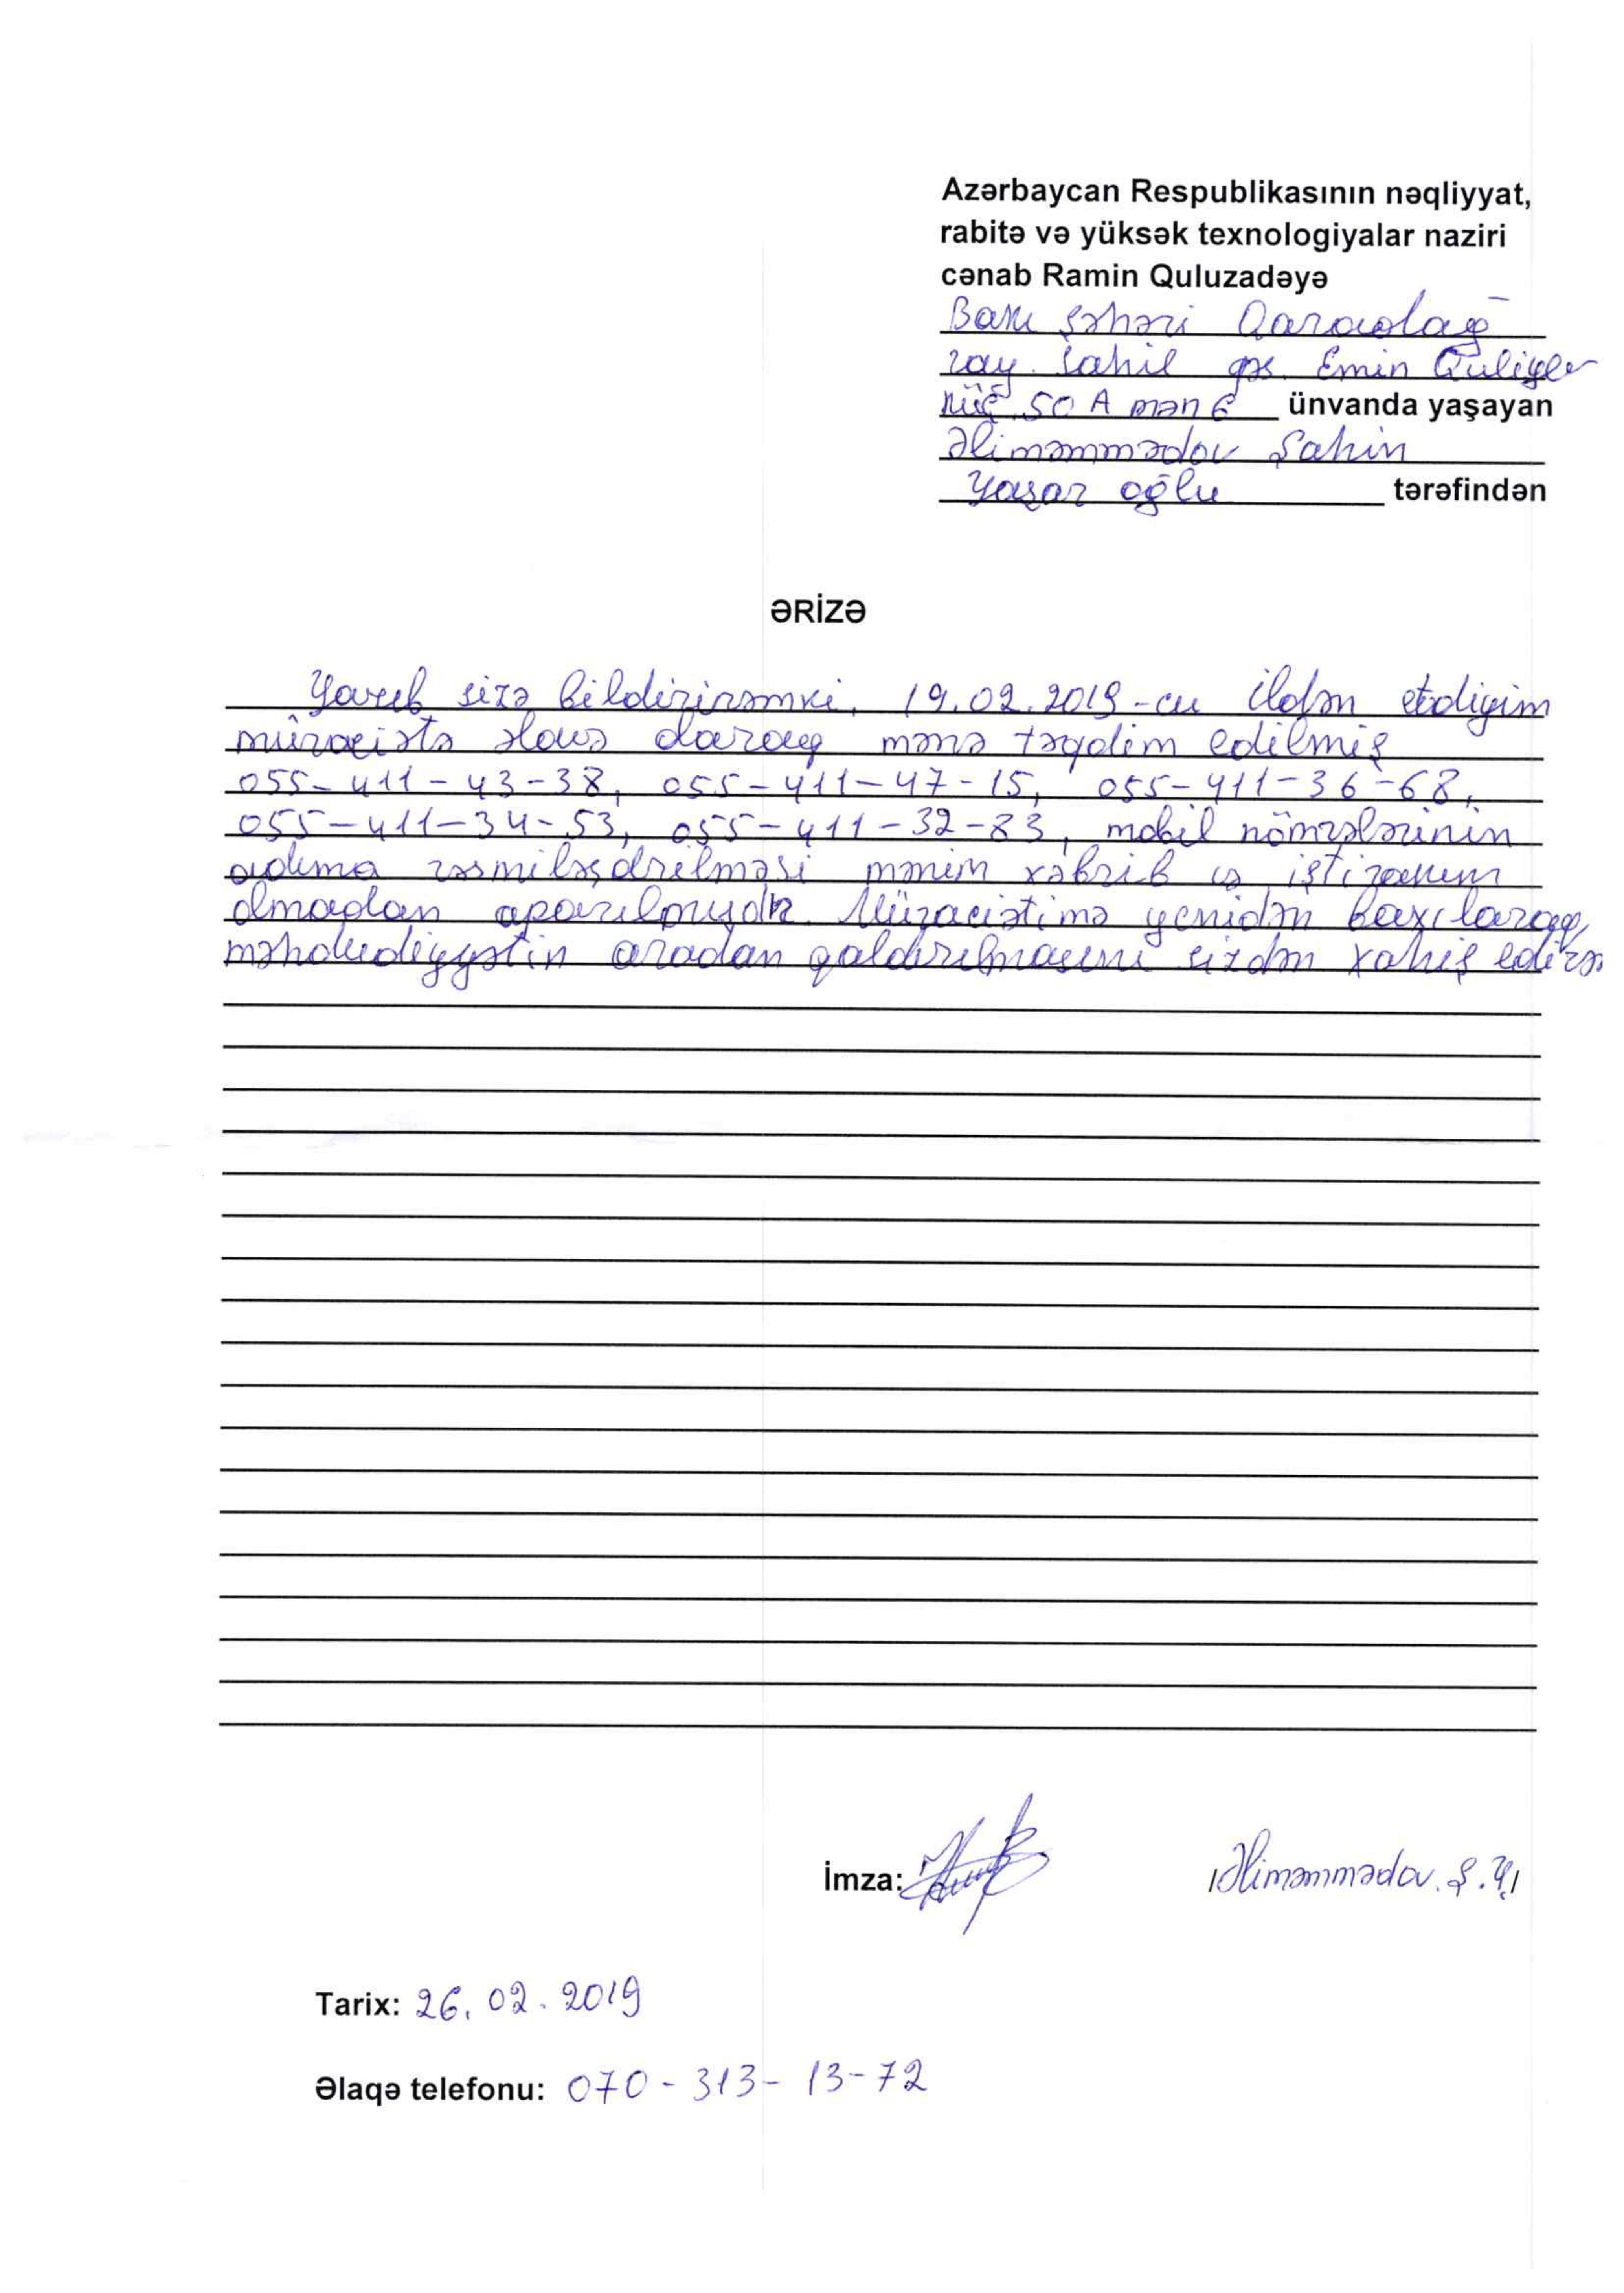 Azərbaycan Respublikasının nəqliyyat,
rabitə və yüksək texnologiyalar naziri
cənab Ramin Quluzadəyə
Bakı şəhəri Qaradağ
ray. Sahil qəs. Emin Quliyev
küç 50 A mən 6 ünvanda yaşayan
Əliməmmədov Şahin
Yaşar oğlu tərəfindən
ƏRİZƏ
Yazıb sizə bildirirəmki, 19.02.2019-cu ildən etdiyim
müraciətə əlavə olaraq mənə təqdim edilmiş
055-411-43-38, 055-411-47-15, 055-411-36-68,
055-411-34-53, 055-411-32-83, mobil nömrələrinin
adıma rəsmiləşdrilməsi mənim xəbrib və iştirakım
olmadan aparılmışdır. Müraciətimə yenidən baxılaraq,
məhdudiyyətin aradan qaldırılmasını sizdən xahiş edirə
İmza: Əliməmmədov. Ş.Y.
Tarix: 26.02.2019
Əlaqə telefonu: 070-313-13-72